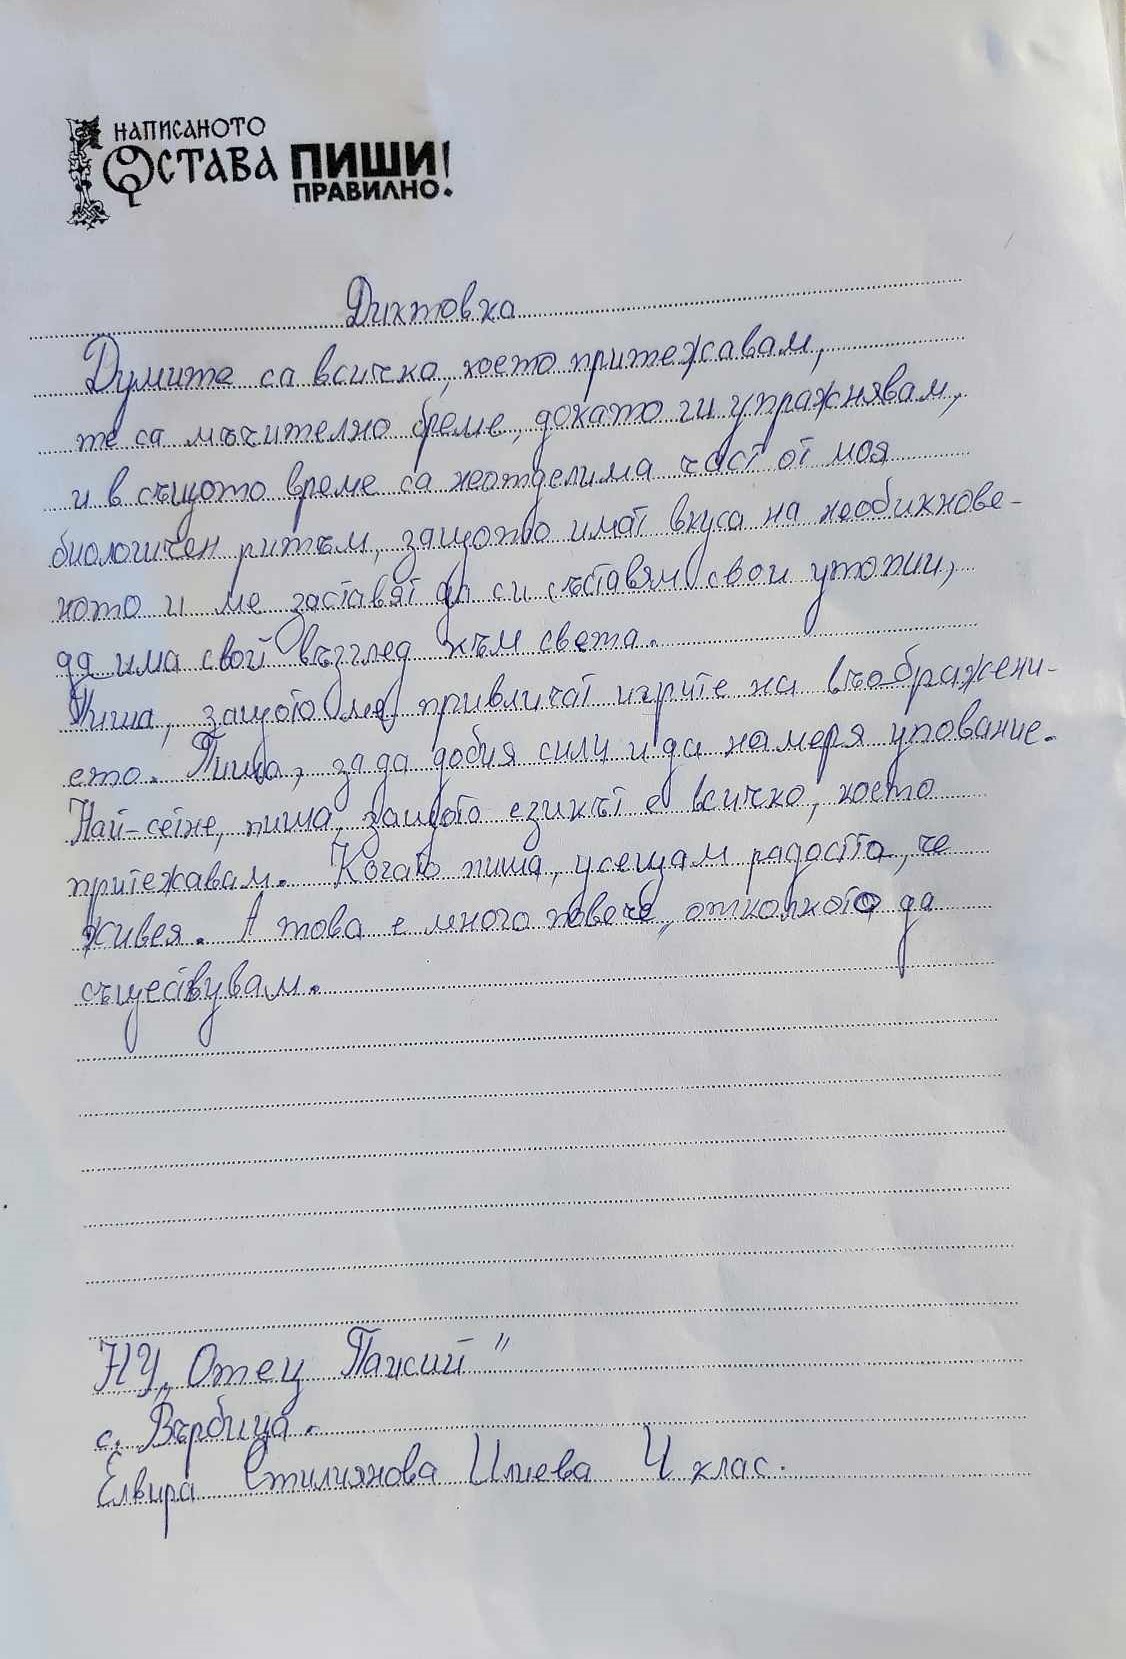 НАПИСАНОТО
ОСТАВА ПИШИ!
ПРАВИЛНО.
Диктовка
Думите са всичко, което притежавам,
те са мъчително бреме, докато ги упражнявам,
и в същото време са неотделима част от моя
биологичен ритъм, защото имат вкуса на необикнове-
ното и ме заставят да си съставям свои утопии,
да има свой възглед към света.
Пиша, защото ме привличат игрите на въображени-
ето. Пиша, за да добия сили и да намеря упование.
Най-сетне, пиша, защото езикът е всичко, което
притежавам. Когато пиша, усещам радостта, че
живея. А това е много повече, отколкото да
съществувам.
НУ „Отец Паисий"
с. Върбица.
Елвира Стилиянова Илиева 4 клас.